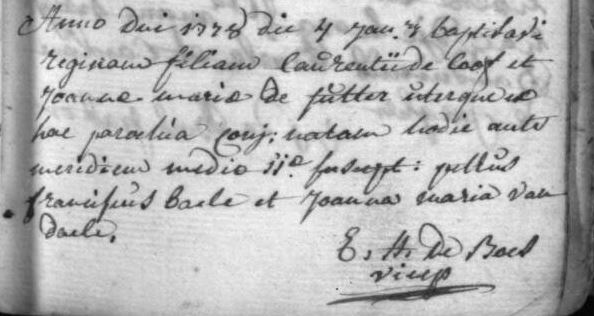 Anno dni 1778 die 4 jan.rs baptisavi
reginam filiam laurentii de loof et
joannæ mariæ de sutter uterque ex
hac parochia conj: natam hodie ante
meridiem medio 11æ suscept: petrus
franciscus baele et joanna maria van
daele.
E. H. de Boes
vicep